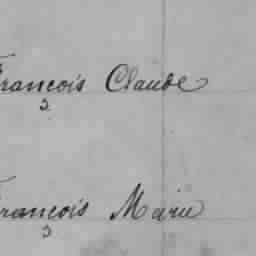 François Claude
2
François Marie
3